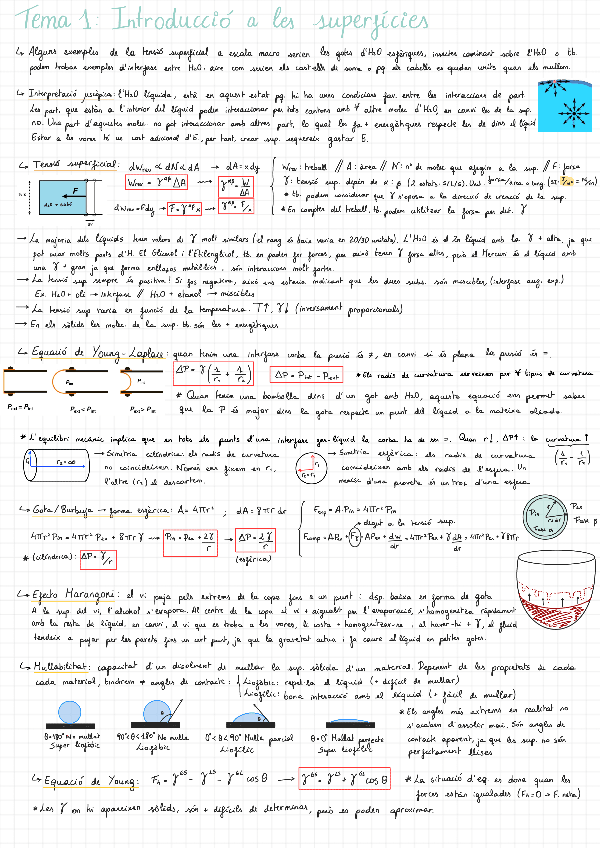 Tema 1: Introducció a les superfícies
↳ Alguns exemples de la tensió superficial a escala macro serien les gotes d'H₂O esfèriques, insectes caminant sobre l'H₂O o tb.
poden trobar exemples d'interfase entre H₂O-aire com serien els castells de sorra o pq els cabells es queden units quan els mullem.
↳ Interpretació física: l'H₂O líquida, està en aquest estat pq hi ha unes condicions fav. entre les interaccions de part.
Les part. que estan a l'interior del líquid poden interaccionar per tots cantons amb ≠ altre molec d'H₂O, en canvi les de la sup.
no. Una part d'aquestes molec. no pot interaccionar amb altres part., lo qual les fa + energètiques respecte les de dins el líquid
Estar a les vores té un cost addicional d'E, per tant, crear sup. requereix gastar E.
↳ Tensió superficial: dWrev α dN α dA → dA = x dy
Wrev = γᵅᵝ ΔA → γᵅᵝ = W/ΔA
dWrev = Fdy → F = γᵅᵝ x → γᵅᵝ = F/x
Wrev: treball // A: àrea // N: nº de molec que afegim a la sup. // F: força
γ: tensió sup. depèn de α i β (2 estats: S/L/G). Unit.: força/àrea o long (SI: J/m² = N/m)
* tb. podem considerar que γ s'oposa a la direcció de creació de la sup.
* En comptes del treball, tb. podem utilitzar la força per def. γ
→ La majoria dels líquids tenen valors de γ molt similars (el rang és baix varia en 20/30 unitats). L'H₂O és el líquid amb la γ + alta, ja que
pot crear molts ponts d'H. El Glicerol i l'Etilenglicol, tb. en poden fer forces, per això tenen γ força altes, però el Mercuri és el líquid amb
una γ + gran ja que forma enllaços metàl·lics i són interaccions molt fortes.
→ La tensió sup sempre és positiva! Si fos negativa, això ens estaria indicant que les dues subs. són miscibles, (interfase aug. esp.)
Ex. H₂O + oli → interfase // H₂O + etanol → miscibles
→ La tensió sup varia en funció de la temperatura: T↑, γ↓ (inversament proporcionals)
→ En els sòlids les molec. de la sup. tb. són les + energètiques
↳ Equació de Young-Laplace: quan tenim una interfase corba la pressió és ≠, en canvi si és plana la pressió és =.
ΔP = γ (1/r₁ + 1/r₂)
ΔP = Pint - Pext
* Els radis de curvatura serveixen per ≠ tipus de curvatura
Pext = Pint Pext < Pint Pext > Pint
* Quan tenim una bombolla dins d'un got amb H₂O, aquesta equació ens permet saber
que la P és major dins la gota respecte un punt del líquid a la mateixa alçada.
* L'equilibri mecànic implica que en tots els punts d'una interfase gas-líquid la corba ha de ser =. Quan r↓, ΔP↑ i la curvatura ↑
r₂ = ∞
→ Simetria cilíndrica: els radis de curvatura
no coincideixen. Només ens fixem en r₁,
l'altre (r₂) el descartem.
r₁ = r₂
→ Simetria esfèrica: els radis de curvatura
coincideixen amb els radis de l'esfera. Un
menisc d'una proveta és un troç d'una esfera.
(1/r₁ = 1/r₂)
↳ Gota/Burbuja → forma esfèrica: A = 4πr² ; dA = 8πr dr
4πr² Pin = 4πr² Pex + 8πr γ → Pin = Pex + 2γ/r → ΔP = 2γ/r
(esfèrica)
* (cilíndrica): ΔP = γ/r
Fexp = A·Pin = 4πr² Pin
degut a la tensió sup.
Fcomp = APex + Fγ = APex + dw/dr = 4πr² Pex + γ dA/dr = 4πr² Pex + γ 8πr
Pin Pex
Fase α Fase β
↳ Efecto Marangoni: el vi puja pels extrems de la copa fins a un punt i dsp. baixa en forma de gota
A la sup del vi, l'alcohol s'evapora. Al centre de la copa el vi + aigualit per l'evaporació, s'homogenitza ràpidament
amb la resta de líquid, en canvi, el vi que es troba a les vores, li costa + homogenitzar-se i al haver-hi + γ, el fluid
tendeix a pujar per les parets fins un cert punt, ja que la gravetat actua i fa caure el líquid en petites gotes.
↳ Mullabilitat: capacitat d'un dissolvent de mullar la sup. sòlida d'un material. Depenent de les propietats de cada
cada material, tindrem ≠ angles de contacte: Liofòbic: repel·la el líquid (+ difícil de mullar)
Liofílic: bona interacció amb el líquid (+ fàcil de mullar)
θ = 180º No mulla
Super liofòbic
90º < θ < 180º No mulla
Liofòbic
0º < θ < 90º Mulla parcial
Liofílic
θ = 0º Mullat perfecte
Super liofílic
* Els angles més extrems en realitat no
s'acaben d'assolir mai. Són angles de
contacte aparent, ja que les sup. no són
perfectament llises
↳ Equació de Young: Fₙ = γᴳˢ - γᴸˢ - γᴳᴸ cos θ → γᴳˢ = γᴸˢ + γᴳᴸ cos θ
* La situació d'eq. es dona quan les
forces estan igualades (Fₙ = 0 → F. neta)
* Les γ on hi apareixen sòlids, són + difícils de determinar, però es poden aproximar.